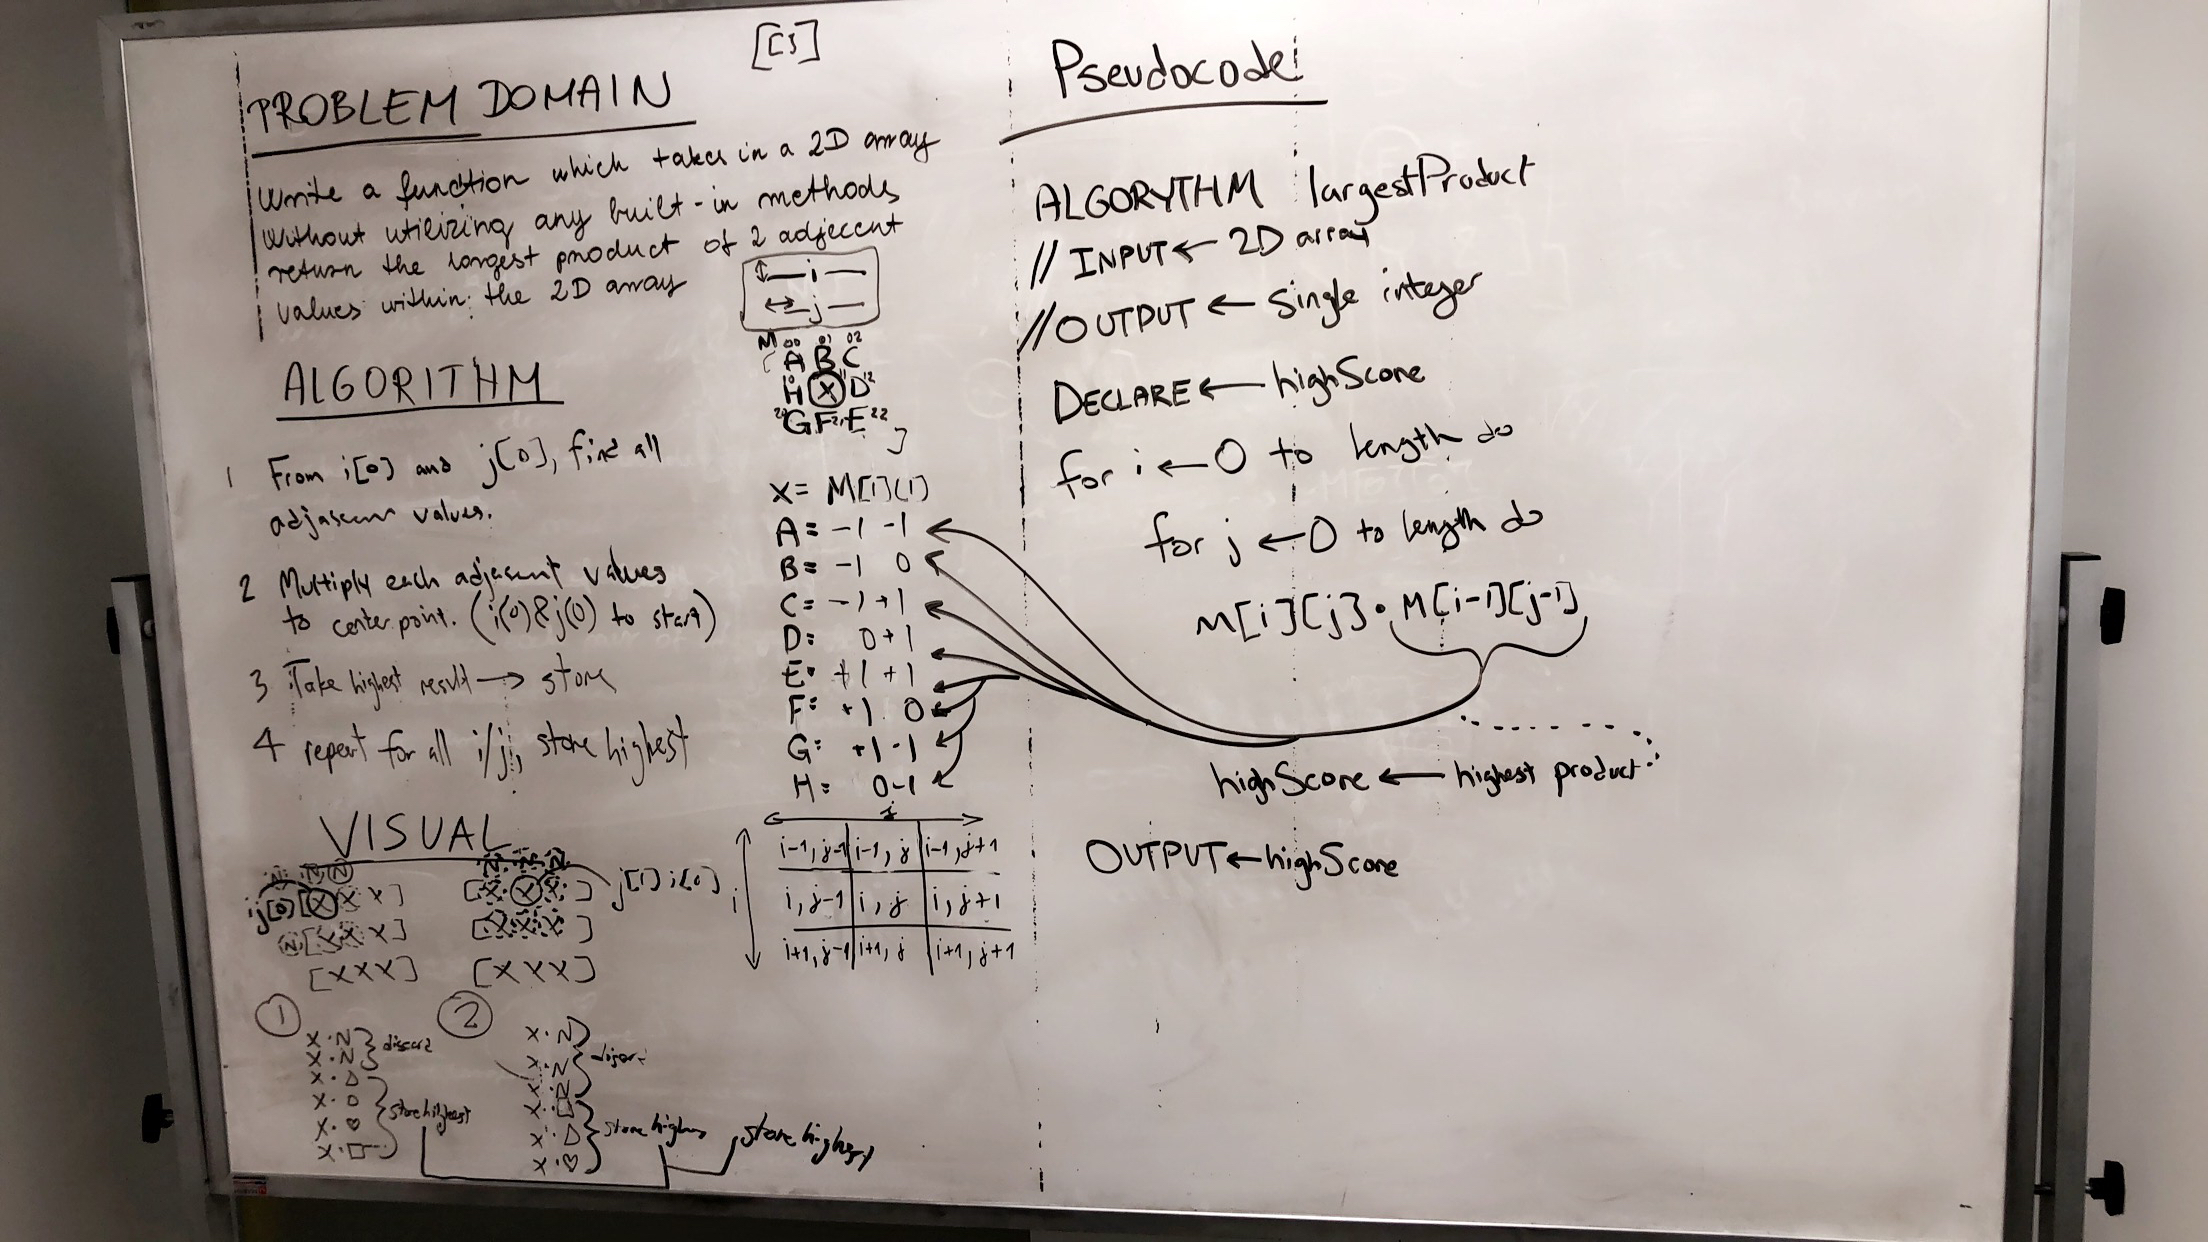 PROBLEM DOMAIN
Write a function which takes in a 2D array
Without utilizing any built-in methods
return the largest product of 2 adjecent
values within the 2D array
i
j
M 00 01 02
A B C
H X D 12
20 G F 21 E 22
ALGORITHM
1 From i[0] and j[0], find all
adjascent values.
2 Multiply each adjacent values
to center point. (i(0)&j(0) to start)
3 Take highest result → store
4 repeat for all i/j, store highest
X = M[1](1)
A = -1 -1
B = -1 0
C = -1 +1
D = 0 +1
E = +1 +1
F = +1 0
G = +1 -1
H = 0 -1
VISUAL
N N N
ij[0] [X X X]
N [X X X]
[X X X]
N N N
[X X X] j[1] i[0]
[X X X]
[X X X]
j
i
i-1, j-1 i-1, j i-1, j+1
i, j-1 i, j i, j+1
i+1, j-1 i+1, j i+1, j+1
1
X · N
X · N
X · △
X · ○
X · ♡
X · □
store highest
2
X · N
X · N
X · N
X · □
X · △
X · ♡
store highest
Pseudocode
ALGORYTHM largestProduct
// INPUT ← 2D array
// OUTPUT ← single integer
DECLARE ← highScore
for i ← 0 to length do
for j ← 0 to length do
M[i][j] • M[i-1][j-1]
highScore ← highest product
OUTPUT ← highScore